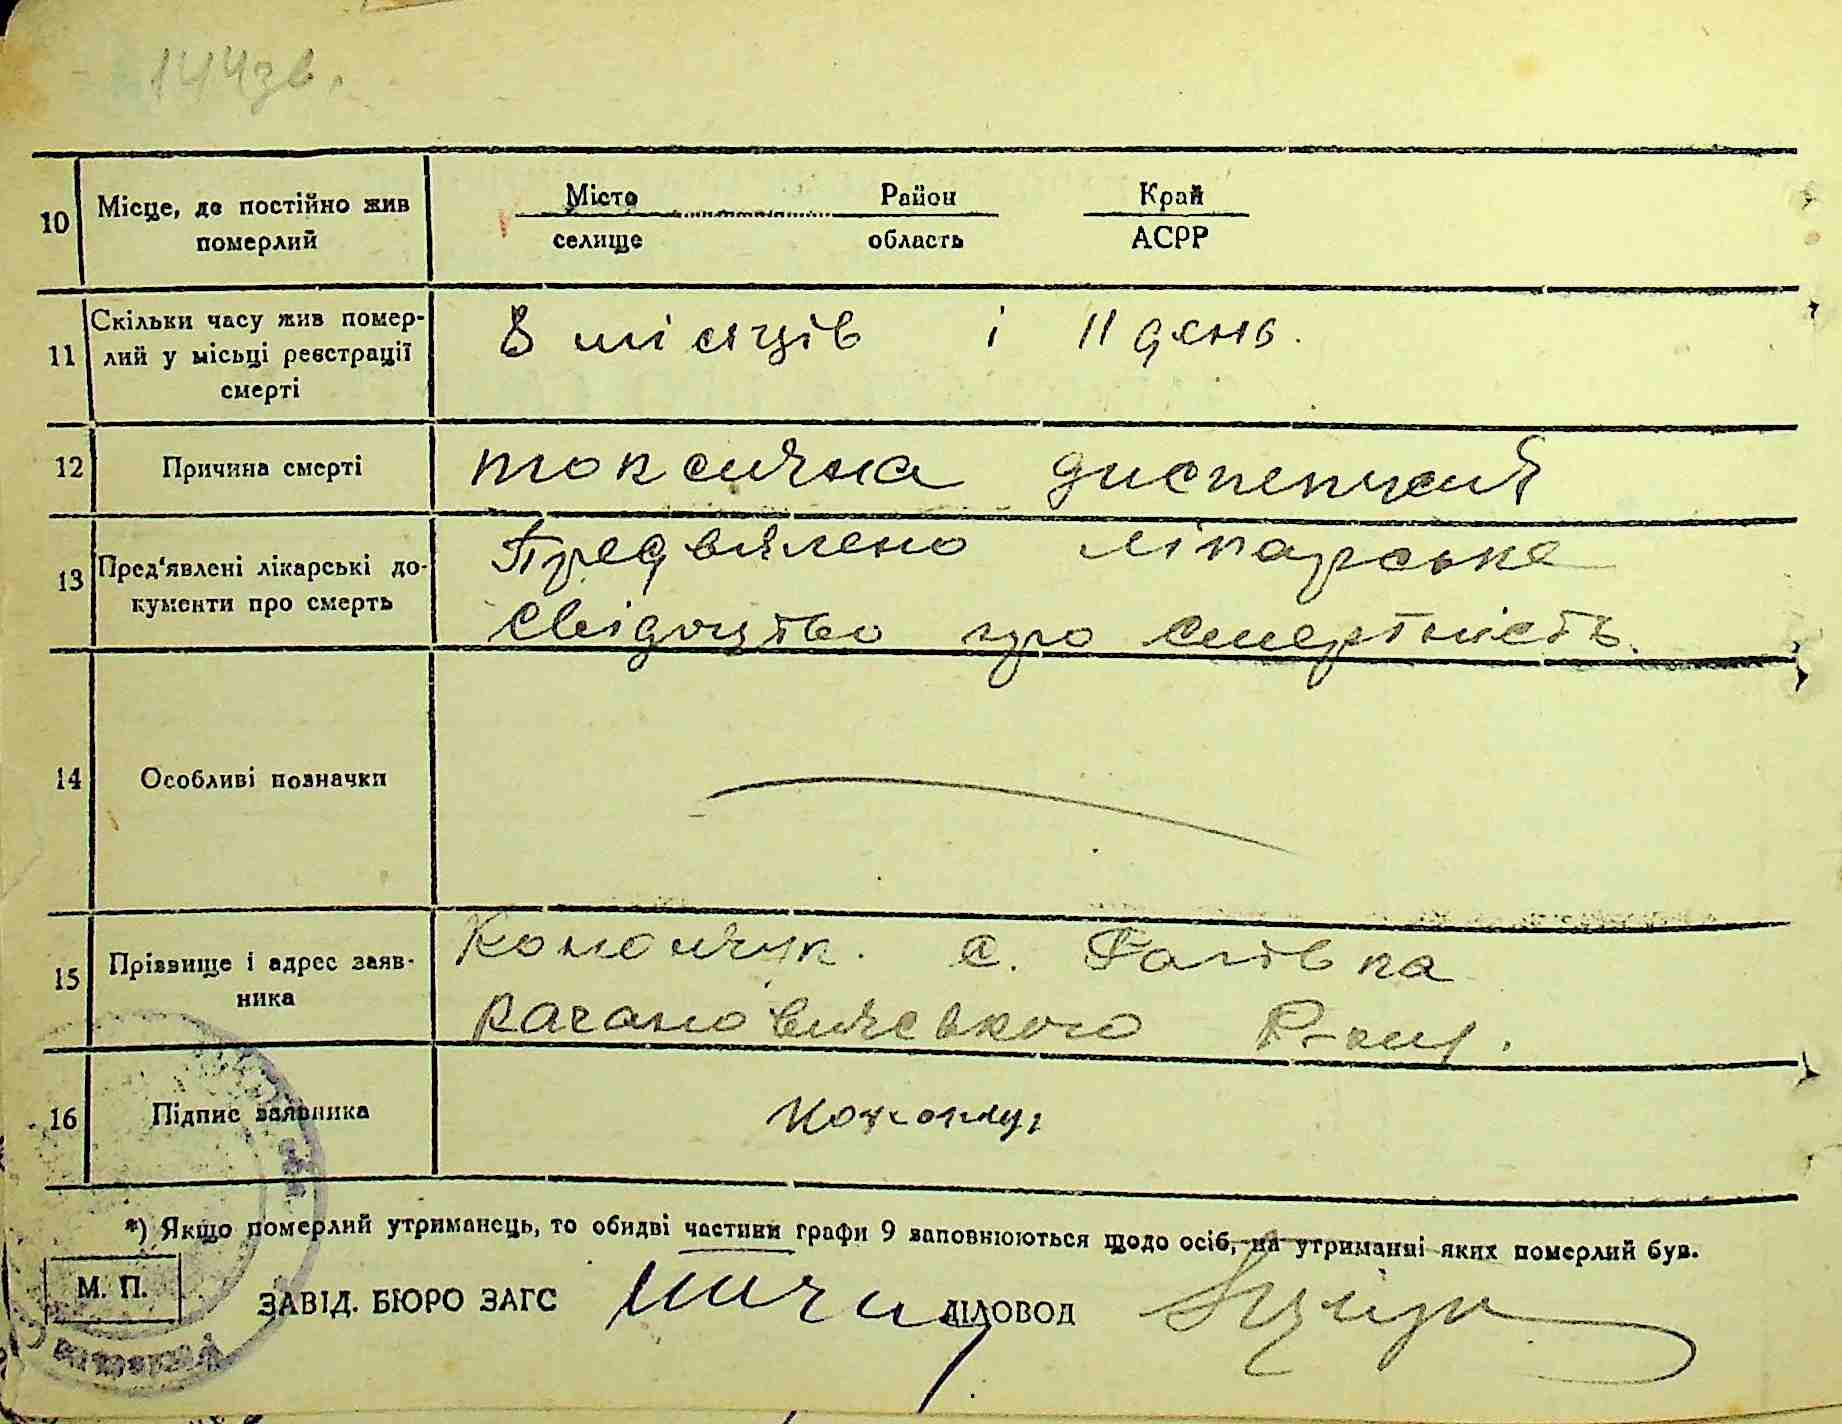 144зв.
10 Місце, де постійно жив померлий
Місто Район Край
селище область АСРР
11 Скільки часу жив помер-
лий у місьці реєстрації
смерті
8 місяців і 11 день.
12 Причина смерті
токсична диспепсия
13 Пред'явлені лікарські до-
кументи про смерть
Предвялено лікарське
свідоцтво про смертність.
14 Особливі позначки
15 Прізвище і адрес заяв-
ника
с.
Кагановичського Р-ну.
16 Підпис заявника
*) Якщо померлий утриманець, то обидві частини графи 9 заповнюються щодо осіб, на утриманні яких померлий був.
М. П.
ЗАВІД. БЮРО ЗАГС ДІЛОВОД